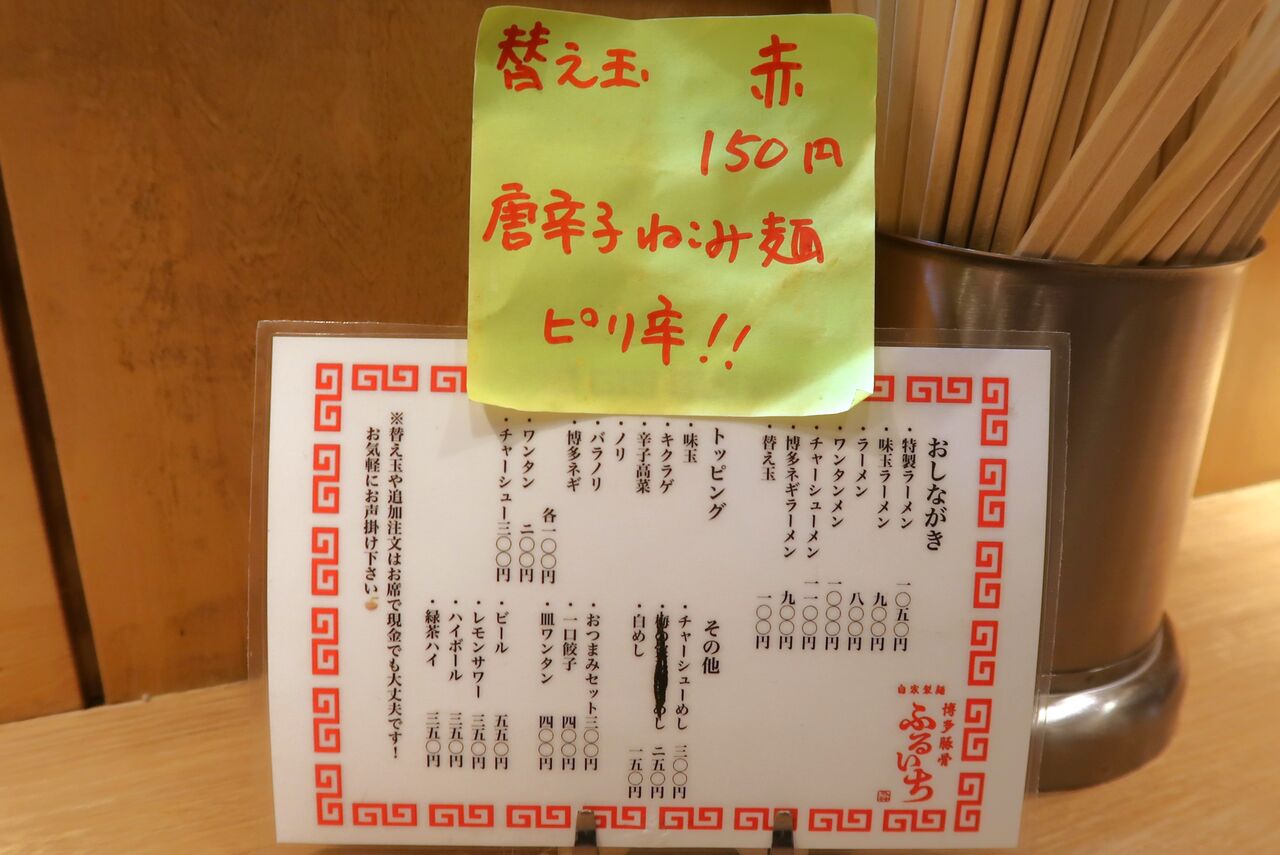 替え玉 赤
150円
唐辛子ねこみ麺
ピリ辛!!
おしながき
・特製ラーメン 一〇五〇円
・味玉ラーメン 九〇〇円
・ラーメン 八〇〇円
・ワンタンメン 一〇〇〇円
・チャーシューメン 一一〇〇円
・博多ネギラーメン 九〇〇円
・替え玉 一〇〇円
トッピング
・味玉
・キクラゲ
・辛子高菜
・ノリ
・バラノリ
・博多ネギ
各一〇〇円
・ワンタン 二〇〇円
・チャーシュー 三〇〇円
その他
・チャーシューめし 三〇〇円
めし 二五〇円
・白めし 一五〇円
・おつまみセット 三〇〇円
・一口餃子 四〇〇円
・皿ワンタン 四〇〇円
・ビール 五五〇円
・レモンサワー 三五〇円
・ハイボール 三五〇円
・緑茶ハイ 三五〇円
※替え玉や追加注文はお席で現金でも大丈夫です!
お気軽にお声掛け下さい
自家製麺
博多豚骨
ふるいち